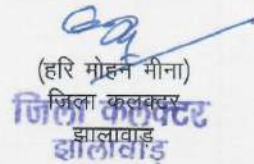 (हरि मोहन मीना)
जिला कलक्टर
झालावाड़
जिला कलक्टर
झालावाड़